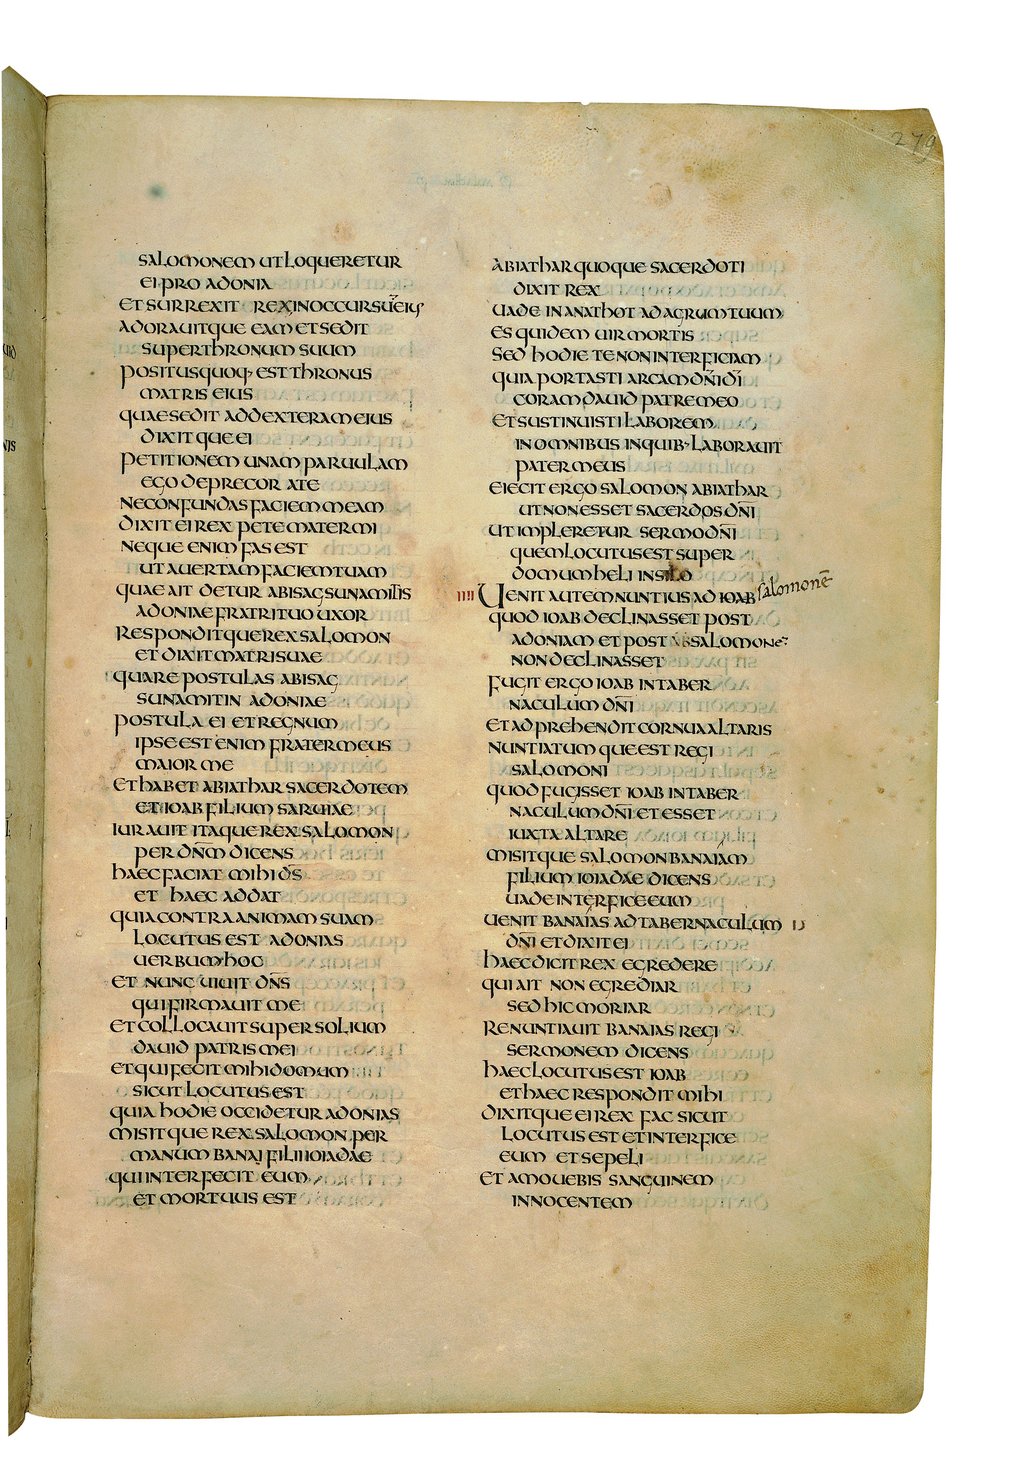 279
SALOMONEM UT LOQUERETUR
EI PRO ADONIA
ET SURREXIT REX IN OCCURSŪ EIUS
ADORAUITQUE EAM ET SEDIT
SUPER THRONUM SUUM
POSITUSQUOQ· EST THRONUS
MATRIS EIUS
QUAE SEDIT AD DEXTERAM EIUS
DIXITQUE EI
PETITIONEM UNAM PARUULAM
EGO DEPRECOR A TE
NE CONFUNDAS FACIEM MEAM
DIXIT EI REX PETE MATER MI
NEQUE ENIM FAS EST
UT AUERTAM FACIEM TUAM
QUAE AIT DETUR ABISAG SUNAMITIS
ADONIAE FRATRI TUO UXOR
RESPONDITQUE REX SALOMON
ET DIXIT MATRI SUAE
QUARE POSTULAS ABISAG
SUNAMITIN ADONIAE
POSTULA EI ET REGNUM
IPSE EST ENIM FRATER MEUS
MAIOR ME
ET HABET ABIATHAR SACERDOTEM
ET IOAB FILIUM SARUIAE
IURAUIT ITAQUE REX SALOMON
PER DN̄M DICENS
HAEC FACIAT MIHI DS̄
ET HAEC ADDAT
QUIA CONTRA ANIMAM SUAM
LOCUTUS EST ADONIAS
UERBUM HOC
ET NUNC UIUIT DN̄S
QUI FIRMAUIT ME
ET COLLOCAUIT SUPER SOLIUM
DAUID PATRIS MEI
ET QUI FECIT MIHI DOMUM
SICUT LOCUTUS EST
QUIA HODIE OCCIDETUR ADONIAS
MISITQUE REX SALOMON PER
MANUM BANAI FILII IOIADAE
QUI INTERFECIT EUM
ET MORTUUS EST
ABIATHAR QUOQUE SACERDOTI
DIXIT REX
UADE IN ANATHOT AD AGRUM TUUM
ES QUIDEM UIR MORTIS
SED HODIE TE NON INTERFICIAM
QUIA PORTASTI ARCAM DN̄I DĪ
CORAM DAUID PATRE MEO
ET SUSTINUISTI LABOREM
IN OMNIBUS IN QUIB· LABORAUIT
PATER MEUS
EIECIT ERGO SALOMON ABIATHAR
UT NON ESSET SACERDOS DN̄I
UT IMPLERETUR SERMO DN̄I
QUEM LOCUTUS EST SUPER
DOMUM HELI IN SILO
IIII UENIT AUTEM NUNTIUS AD IOAB salomonē
QUOD IOAB DECLINASSET POST
ADONIAM ET POST ABSALOMONE
NON DECLINASSET
FUGIT ERGO IOAB IN TABER
NACULUM DN̄I
ET ADPREHENDIT CORNUA ALTARIS
NUNTIATUMQUE EST REGI
SALOMONI
QUOD FUGISSET IOAB IN TABER
NACULUM DN̄I ET ESSET
IUXTA ALTARE
MISITQUE SALOMON BANAIAM
FILIUM IOIADAE DICENS
UADE INTERFICE EUM
UENIT BANAIAS AD TABERNACULUM
DN̄I ET DIXIT EI
HAEC DICIT REX EGREDERE
QUI AIT NON EGREDIAR
SED HIC MORIAR
RENUNTIAUIT BANAIAS REGI
SERMONEM DICENS
HAEC LOCUTUS EST IOAB
ET HAEC RESPONDIT MIHI
DIXITQUE EI REX FAC SICUT
LOCUTUS EST ET INTERFICE
EUM ET SEPELI
ET AMOUEBIS SANGUINEM
INNOCENTEM